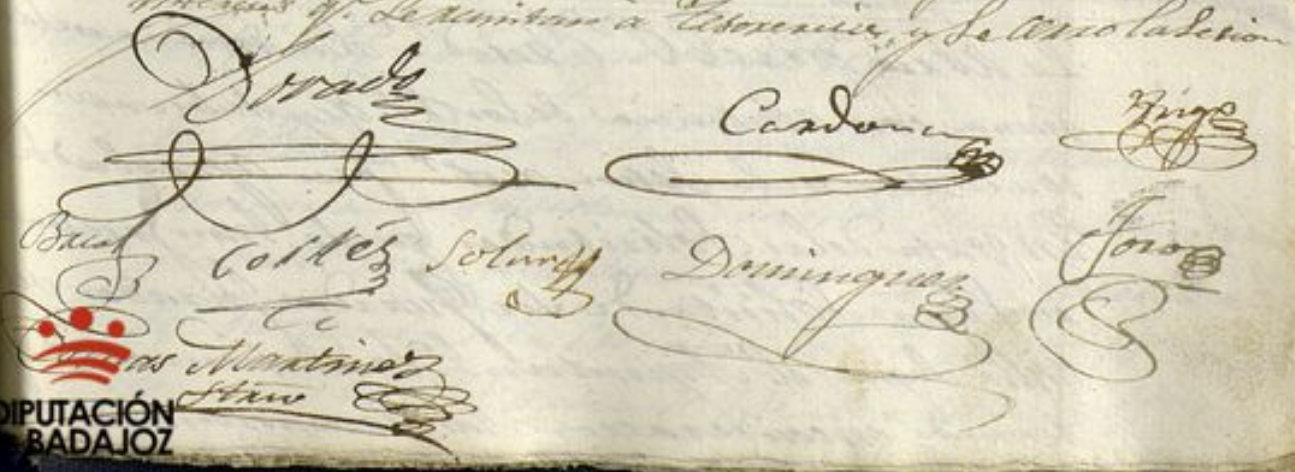 qe. se remitan a Tesoreria, y se cerro la Sesion
Dorado
Cardona
Baca
Cortés
Solar
Dominguez
Toro
as Martinez
DIPUTACIÓN
BADAJOZ